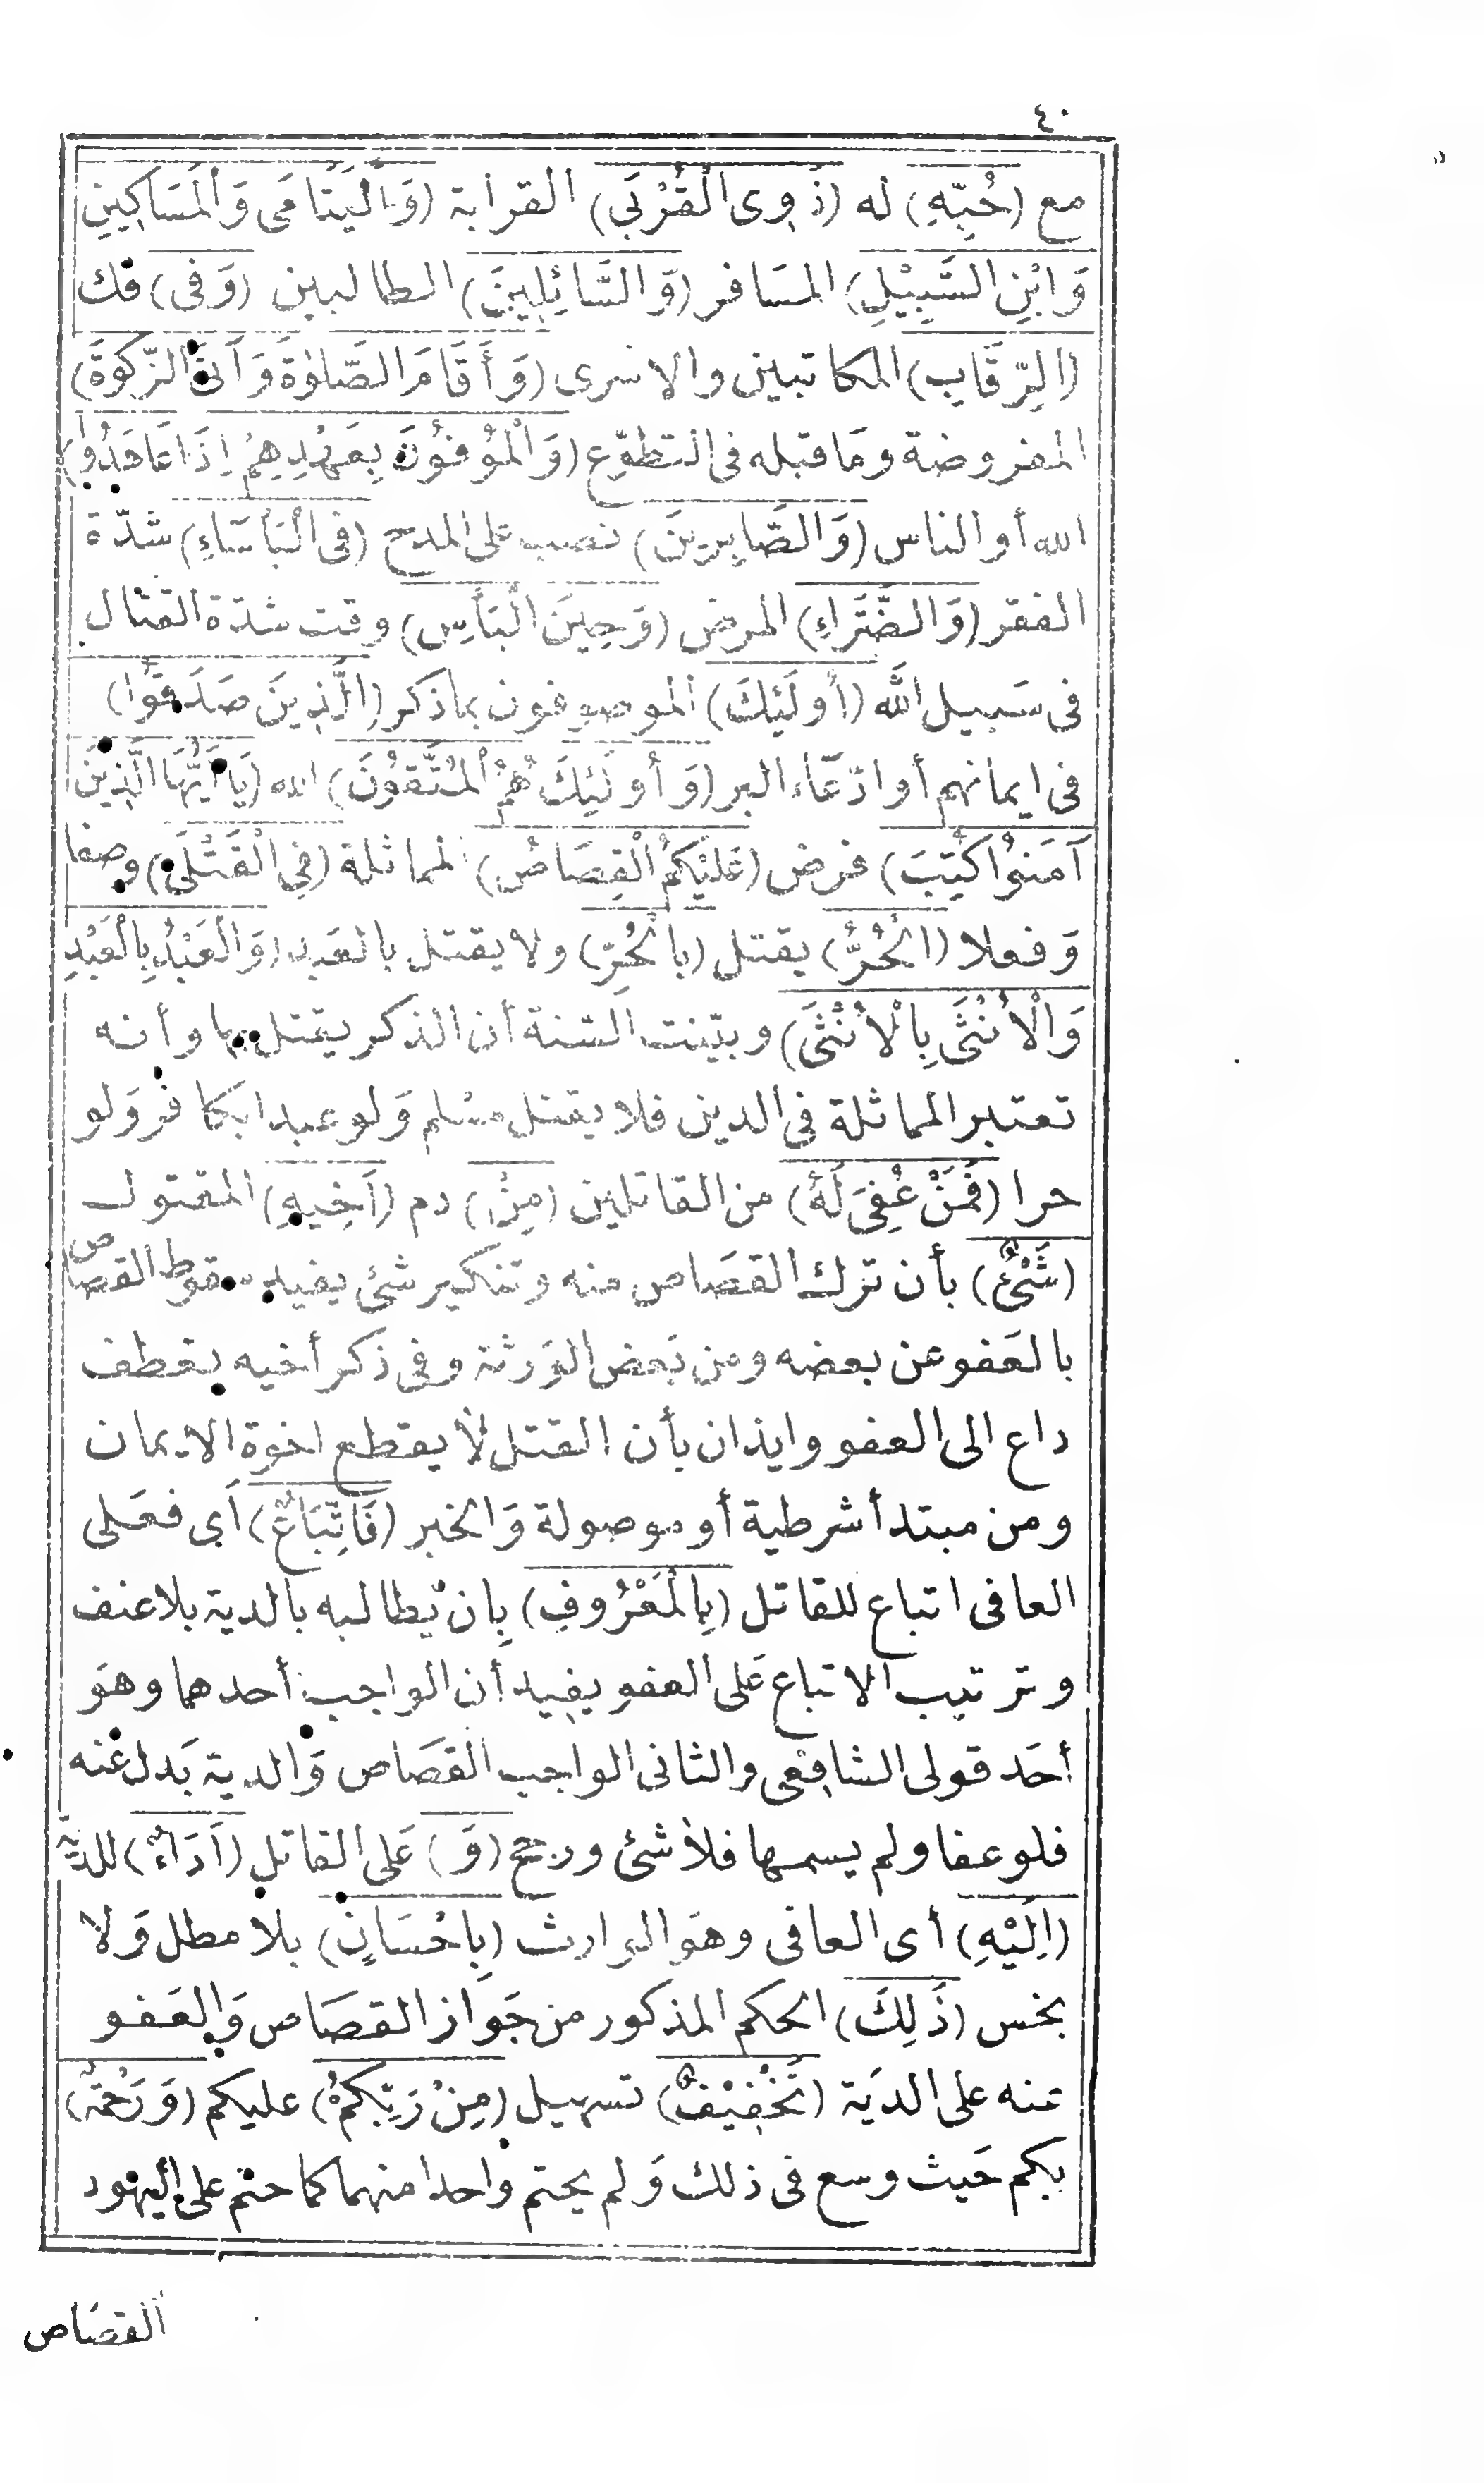 ٤٠
مع (حُبِّهِ) له (ذَوِى الْقُرْبَى) القرابة (وَالْيَتَامَى وَالْمَسَاكِينِ
وَابْنِ السَّبِيْلِ) المسَافر (وَالسَّائِلِيِنَ) الطالبين (وَفى) فك
(الرِّقَابِ) المكاتبين والاسرى (وَأَقَامَ الصَّلوٰةَ وَآتَى الزَّكوةَ)
المفروضة ومَا قبله فى التطوّع (وَالْمُوْفُوْنَ بِعَهْدِهِمْ اِذَا عَاهَدُوا)
الله أو الناس (وَالصَّابِرِينَ) نصب على المدح (فِى الْبَأْسَاءِ) شدّة
الفقر (وَالضَّرَّاءِ) المرض (وَحِينَ الْبَأْسِ) وقت شدّة القتال
فى سَبيل اللَّه (أُولَئِكَ) الموصوفون بماذكر (الَّذِينَ صَدَقُوْا)
فى ايمانهم أو ادّعَاء البر (وَأُولَئِكَ هُمُ الْمُتَّقُوْنَ) الله (يَا أَيُّهَا الَّذِينَ
آمَنُوْا كُتِبَ) فرض (عَلَيْكُمُ الْقِصَاصُ) المماثلة (فِي الْقَتْلَى) وصفا
وَفعلا (الْحُرُّ) يقتل (بِالْحُرِّ) ولا يقتل بالعَبد (وَالْعَبْدُ بِالْعَبْدِ
وَالْأُنْثَى بِالْأُنْثَى) وبيّنت السّنة أن الذكر يقتل بها وأنه
تعتبر المماثلة في الدين فلا يقتل مسْلم وَلو عبدا بكافر وَلو
حرا (فَمَنْ عُفِيَ لَهُ) من القاتلين (مِنْ) دم (أَخِيهِ) المقتول
(شَيْءٌ) بأن ترك القصَاص منه وتنكير شئ يفيد سقوط القصاص
بالعَفو عن بعضه ومن بَعض الوَرثة وفى ذكر أخيه تعطف
داع الى العفو وايذان بأن القتل لا يقطع اخوة الايمان
ومن مبتدأ شرطية أو موصولة وَالخبر (فَاتِّبَاعٌ) أَى فعَلى
العافى اتباع للقاتل (بِالْمَعْرُوفِ) بِان يُطالبه بالدية بلا عنف
وترتيب الاتباع عَلى العفو يفيد أن الواجب أحدهما وهوَ
أحَد قولى الشافعى والثانى الواجب القصَاص وَالدية بَدل عَنه
فلو عفا ولم يسمها فلا شئ ورجح (وَ) عَلى القاتل (أَدَاءٌ) للديّة
(اِلَيْهِ) أى العافى وهوَ الوارث (بِاِحْسَانٍ) بلا مطل وَلا
بخس (ذَلِكَ) الحكم المذكور من جَوَاز القصَاص وَالعَفو
عنه على الديَة (تَخْفِيْفٌ) تسهيل (مِنْ رَبِّكُمْ) عليكم (وَرَحْمَةٌ)
بكم حَيث وسع فى ذلك وَلم يحتم واحدا منهما كما حتم على اليهود
القصَاص